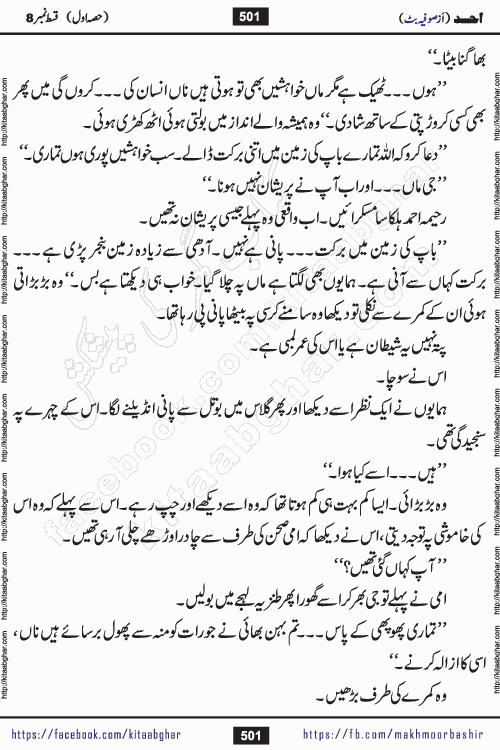 احد (از صوفیہ بٹ) 501 (حصہ اول) قسط نمبر 8
بھاگنا بیٹا۔‘‘
’’ہوں ۔۔۔ ٹھیک ہے مگر ماں خواہشیں بھی تو ہوتی ہیں ناں انسان کی ۔۔۔ کروں گی میں پھر
بھی کسی کروڑ پتی کے ساتھ شادی۔‘‘ وہ ہمیشہ والے انداز میں بولتی ہوئی اٹھ کھڑی ہوئی۔
’’دعا کرو کہ اللہ تمارے باپ کی زمین میں اتنی برکت ڈالے۔ سب خواہشیں پوری ہوں تماری۔‘‘
’’جی ماں ۔۔۔ اور اب آپ نے پریشان نہیں ہونا۔‘‘
رحیمہ احمد ہلکا سا مسکرائیں۔ اب واقعی وہ پہلے جیسی پریشان نہ تھیں۔
’’باپ کی زمین میں برکت ۔۔۔ پانی ہے نہیں۔ آدھی سے زیادہ زمین بنجر پڑی ہے ۔۔۔
برکت کہاں سے آنی ہے۔ ہمایوں بھی لگتا ہے ماں پہ چلا گیا۔ خواب ہی دیکھتا ہے بس۔‘‘ وہ بڑبڑاتی
ہوئی ان کے کمرے سے نکلی تو دیکھا وہ سامنے کرسی پہ بیٹھا پانی پی رہا تھا۔
پتہ نہیں یہ شیطان ہے یا اس کی عمر لمبی ہے۔
اس نے سوچا۔
ہمایوں نے ایک نظر اسے دیکھا اور پھر گلاس میں بوتل سے پانی انڈیلنے لگا۔ اس کے چہرے پہ
سنجیدگی تھی۔
’’ہیں ۔۔۔ اسے کیا ہوا۔‘‘
وہ بڑبڑائی۔ ایسا کم بہت ہی کم ہوتا تھا کہ وہ اسے دیکھے اور چپ رہے۔ اس سے پہلے کہ وہ اس
کی خاموشی پہ توجہ دیتی، اس نے دیکھا کہ امی صحن کی طرف سے چادر اوڑھے چلی آ رہی تھیں۔
’’آپ کہاں گئی تھیں؟‘‘
امی نے پہلے تو جی بھر کر اسے گھورا پھر طنزیہ لہجے میں بولیں۔
’’تماری پھوپھی کے پاس ۔۔۔ تم بہن بھائی نے جو رات کو منہ سے پھول برسائے ہیں ناں،
اسی کا ازالہ کرنے۔‘‘
وہ کمرے کی طرف بڑھیں۔
https://facebook.com/kitaabghar 501 https://fb.com/makhmoorbashir
http://kitaabghar.com
http://kitaabghar.com
http://kitaabghar.com
http://kitaabghar.com
http://kitaabghar.com
http://kitaabghar.com
http://kitaabghar.com
http://kitaabghar.com
کتاب گھر کی پیشکش
facebook.com/kitaabghar
kitaabghar.com